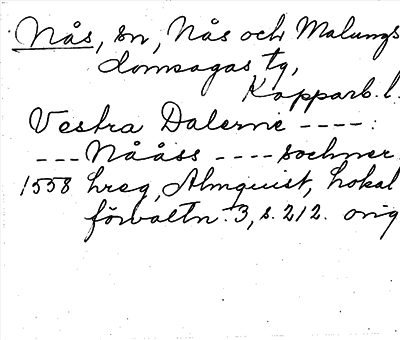 Nås, sn, Nås och Malungs
domsagas tg,
Kopparb. l.
Vestra Dalerne ----:
--- Nååss ---- sochner
1558 hreg, Almquist, Lokal
förvaltn. 3, s. 212. orig